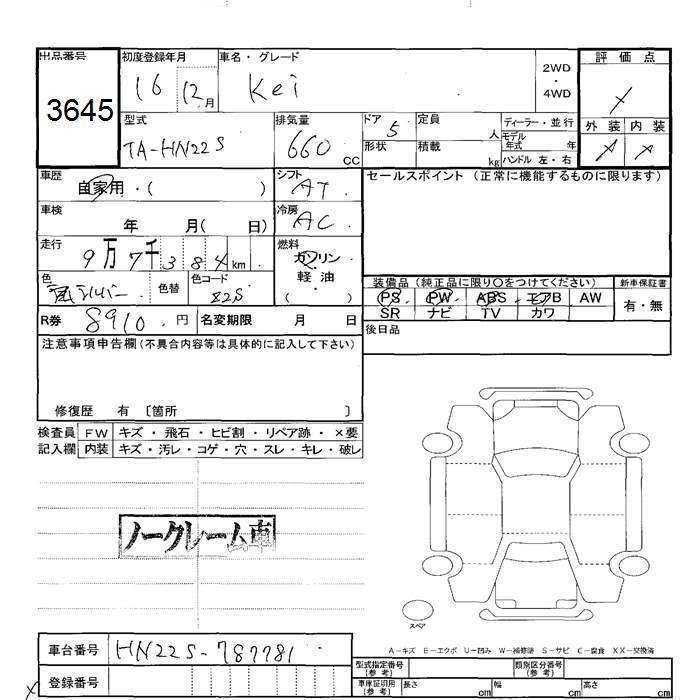 出品番号 初度登録年月 車名・グレード 2WD・4WD 評価点
3645 16 12月 Kei
型式 排気量 ドア 定員 人 ディーラー・並行 外装 内装
TA-HN22S 660 CC 5 形状 積載 kg モデル年式 年
ハンドル 左・右
車歴 自家用・( ) シフト AT セールスポイント (正常に機能するものに限ります)
車検 年 月( 日) 冷房 AC
走行 9万7千384km 燃料 ガソリン
軽油
( )
色 シルバー 色替 色コード Z2S
装備品 (純正品に限り○をつけてください) 新車保証書
PS PW ABS エアB AW 有・無
SR ナビ TV カワ
R券 8910.円 名変期限 月 日 後日品
注意事項申告欄(不具合内容等は具体的に記入して下さい)
修復歴 有 〔箇所 〕
検査員 FW キズ・飛石・ヒビ割・リペア跡・×要
記入欄 内装 キズ・汚レ・コゲ・穴・スレ・キレ・破レ
ノークレーム車
スペア
A-キズ E-エクボ U-凹み W-補修跡 S-サビ C-腐食 XX-交換済
車台番号 HN22S-787781
登録番号
型式指定番号(参考) 類別区分番号(参考)
車庫証明用(参考) 長さ cm 幅 cm 高さ cm